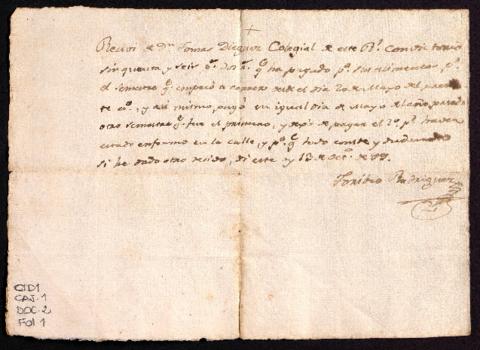 Recivi de Dn Tomas Dieguez Colegial de este Rl. Convictorio
sinquenta y seis ps. dos rs. q. ha pagado pr. sus alimentos pr.
el semestre q. empesó a correr desde el dia 20 de Mayo del presen
te año, y asi mismo pagó en igual dia de Mayo del año pasado
otro semestre q. fue el primero, y dejó de pagar el 2o. pr. haver
estado enfermo en la calle, y pa. q. todo conste
si he dado otro recivo, di este 13 de
Toribio Rodriguez
CID1
CAJ.1
DOC.2
FOL.1